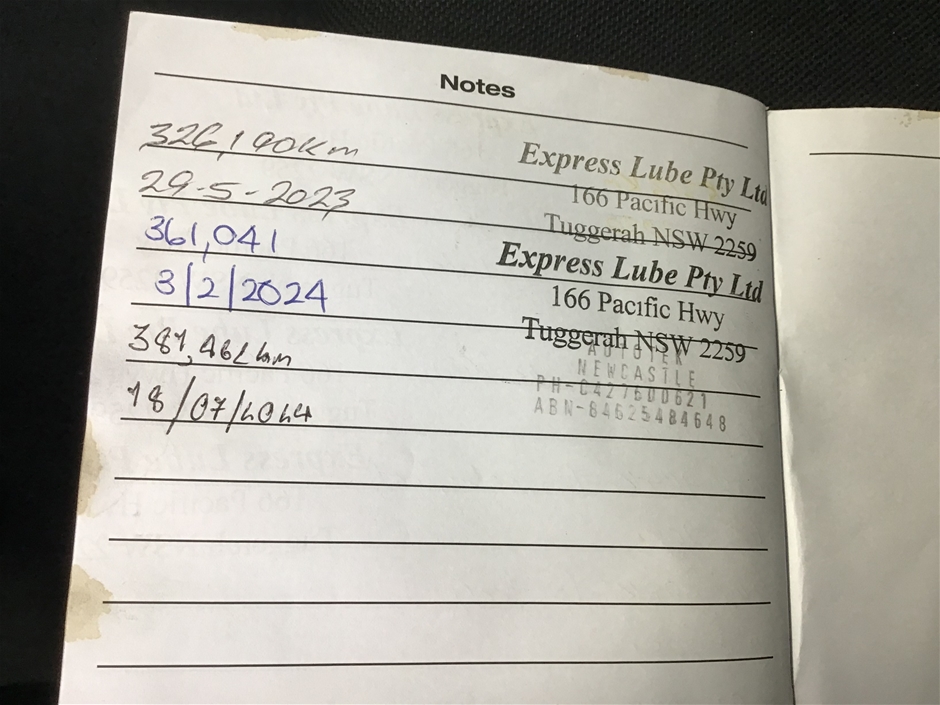 Notes
326,190km
Express Lube Pty Ltd
166 Pacific Hwy
Tuggerah NSW 2259
29-5-2023
361,041
Express Lube Pty Ltd
166 Pacific Hwy
Tuggerah NSW 2259
3/2/2024
381,462km
AUTOTEK
NEWCASTLE
PH-0427600621
ABN-84625484648
18/07/2024